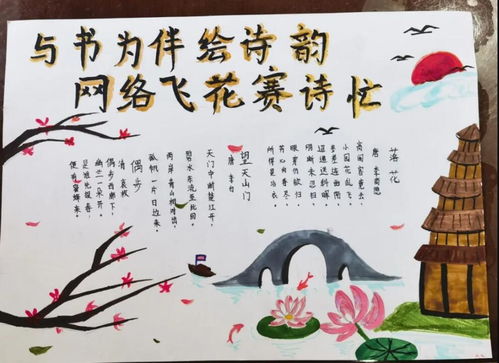 与书为伴绘诗韵
网络飞花赛诗忙
落花
唐 李商隐
高阁客竟去，
小园花乱飞。
参差连曲陌，
迢递送斜晖。
肠断未忍扫，
眼穿仍欲归。
芳心向春尽，
所得是沾衣。
望天山门
唐 李白
天门中断楚江开，
碧水东流至此回。
两岸青山相对出，
孤帆一片日边来。
偶步
清 袁枚
偶步西廊下，
幽兰一朵开。
是谁报
便有蜜蜂来。